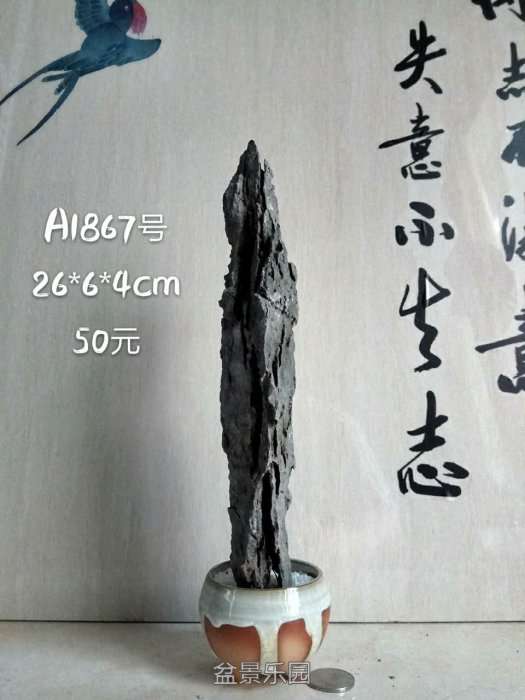 A1867号
26*6*4cm
50元
失意不失志
盆景乐园